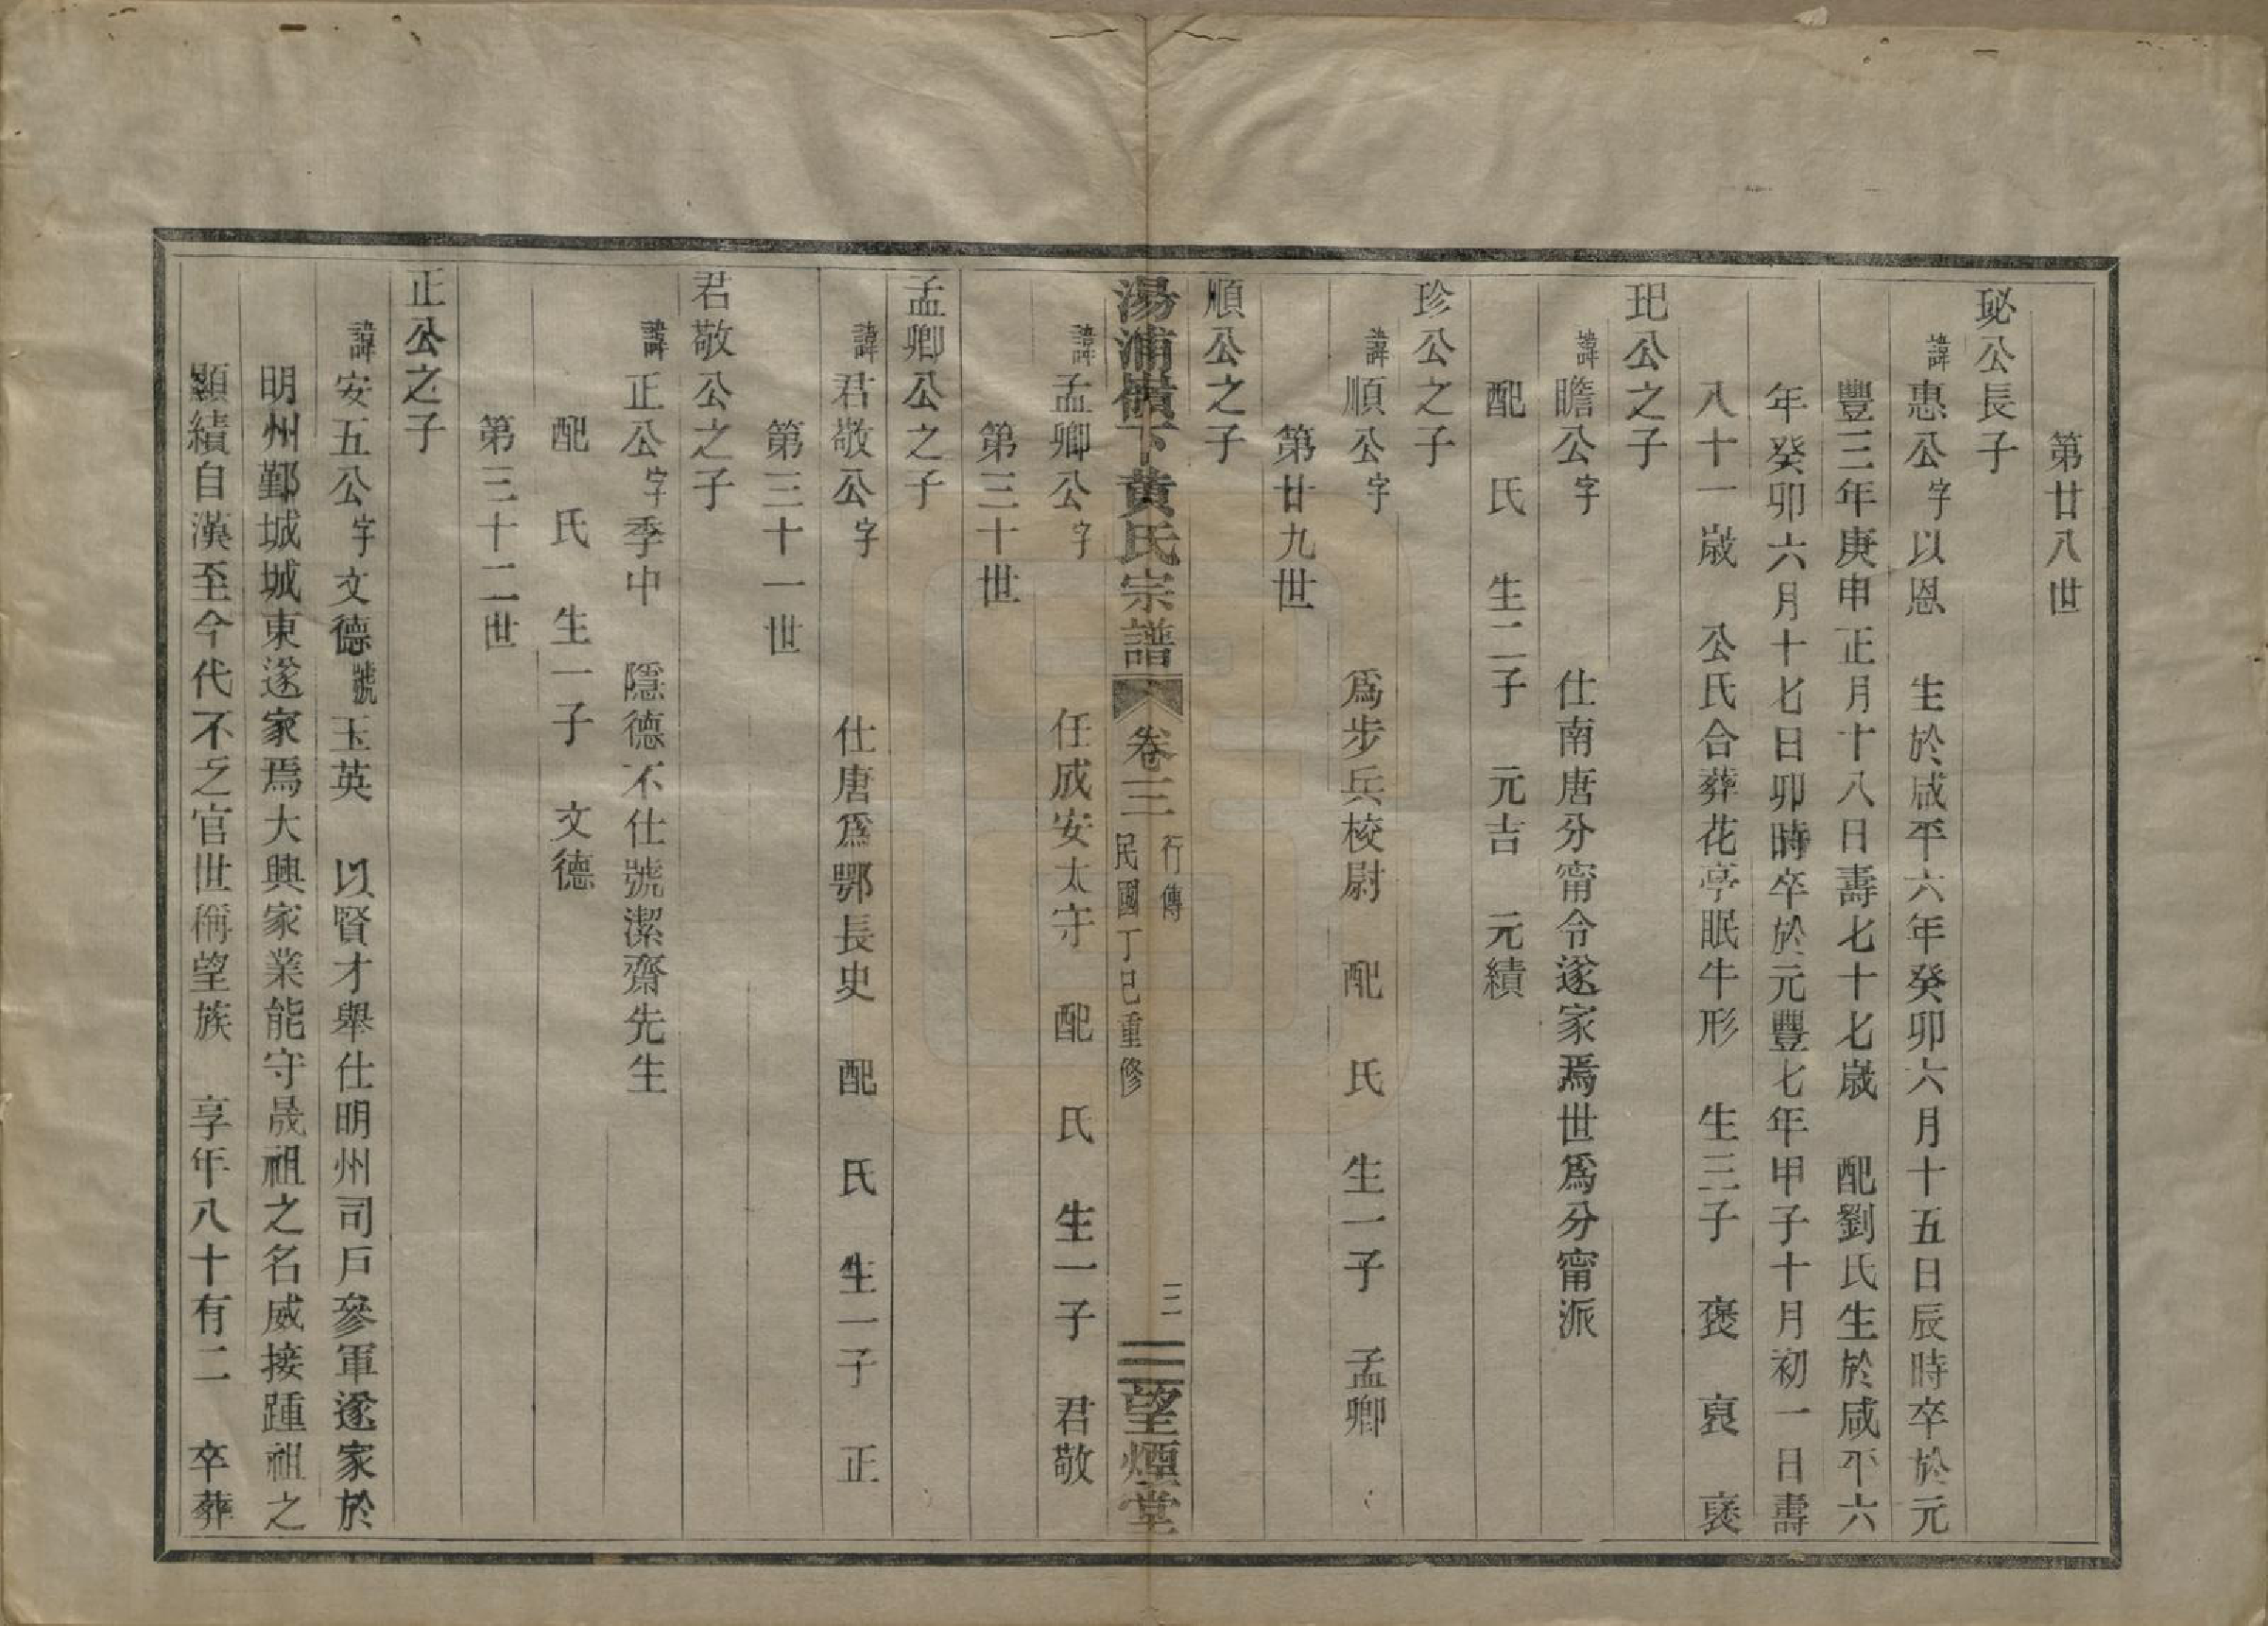 第廿八世
珌公長子
諱惠公字以恩　生於咸平六年癸卯六月十五日辰時卒於元
豐三年庚申正月十八日壽七十七歲　配劉氏生於咸平六
年癸卯六月十七日卯時卒於元豐七年甲子十月初一日壽
八十一歲　公氏合葬花亭眠牛形　生三子　褒　袞　裦
玘公之子
諱瞻公字　　　仕南唐分甯令遂家焉世爲分甯派
配　氏　生二子　元吉　元績
珍公之子
諱順公字　　　爲步兵校尉　配　氏　生一子　孟卿
第廿九世
順公之子
湯浦嶺下黃氏宗譜　卷三　行傳　民國丁巳重修　三　望煙堂
諱孟卿公字　　　任成安太守　配　氏　生一子　君敬
第三十世
孟卿公之子
諱君敬公字　　　仕唐爲鄂長史　配　氏　生一子　正
第三十一世
君敬公之子
諱正公字季中　隱德不仕號潔齋先生
配　氏　生一子　文德
第三十二世
正公之子
諱安五公字文德號玉英　以賢才舉仕明州司戶參軍遂家於
明州鄞城城東遂家焉大興家業能守晟祖之名威接踵祖之
顯績自漢至今代不乏官世稱望族　享年八十有二　卒葬